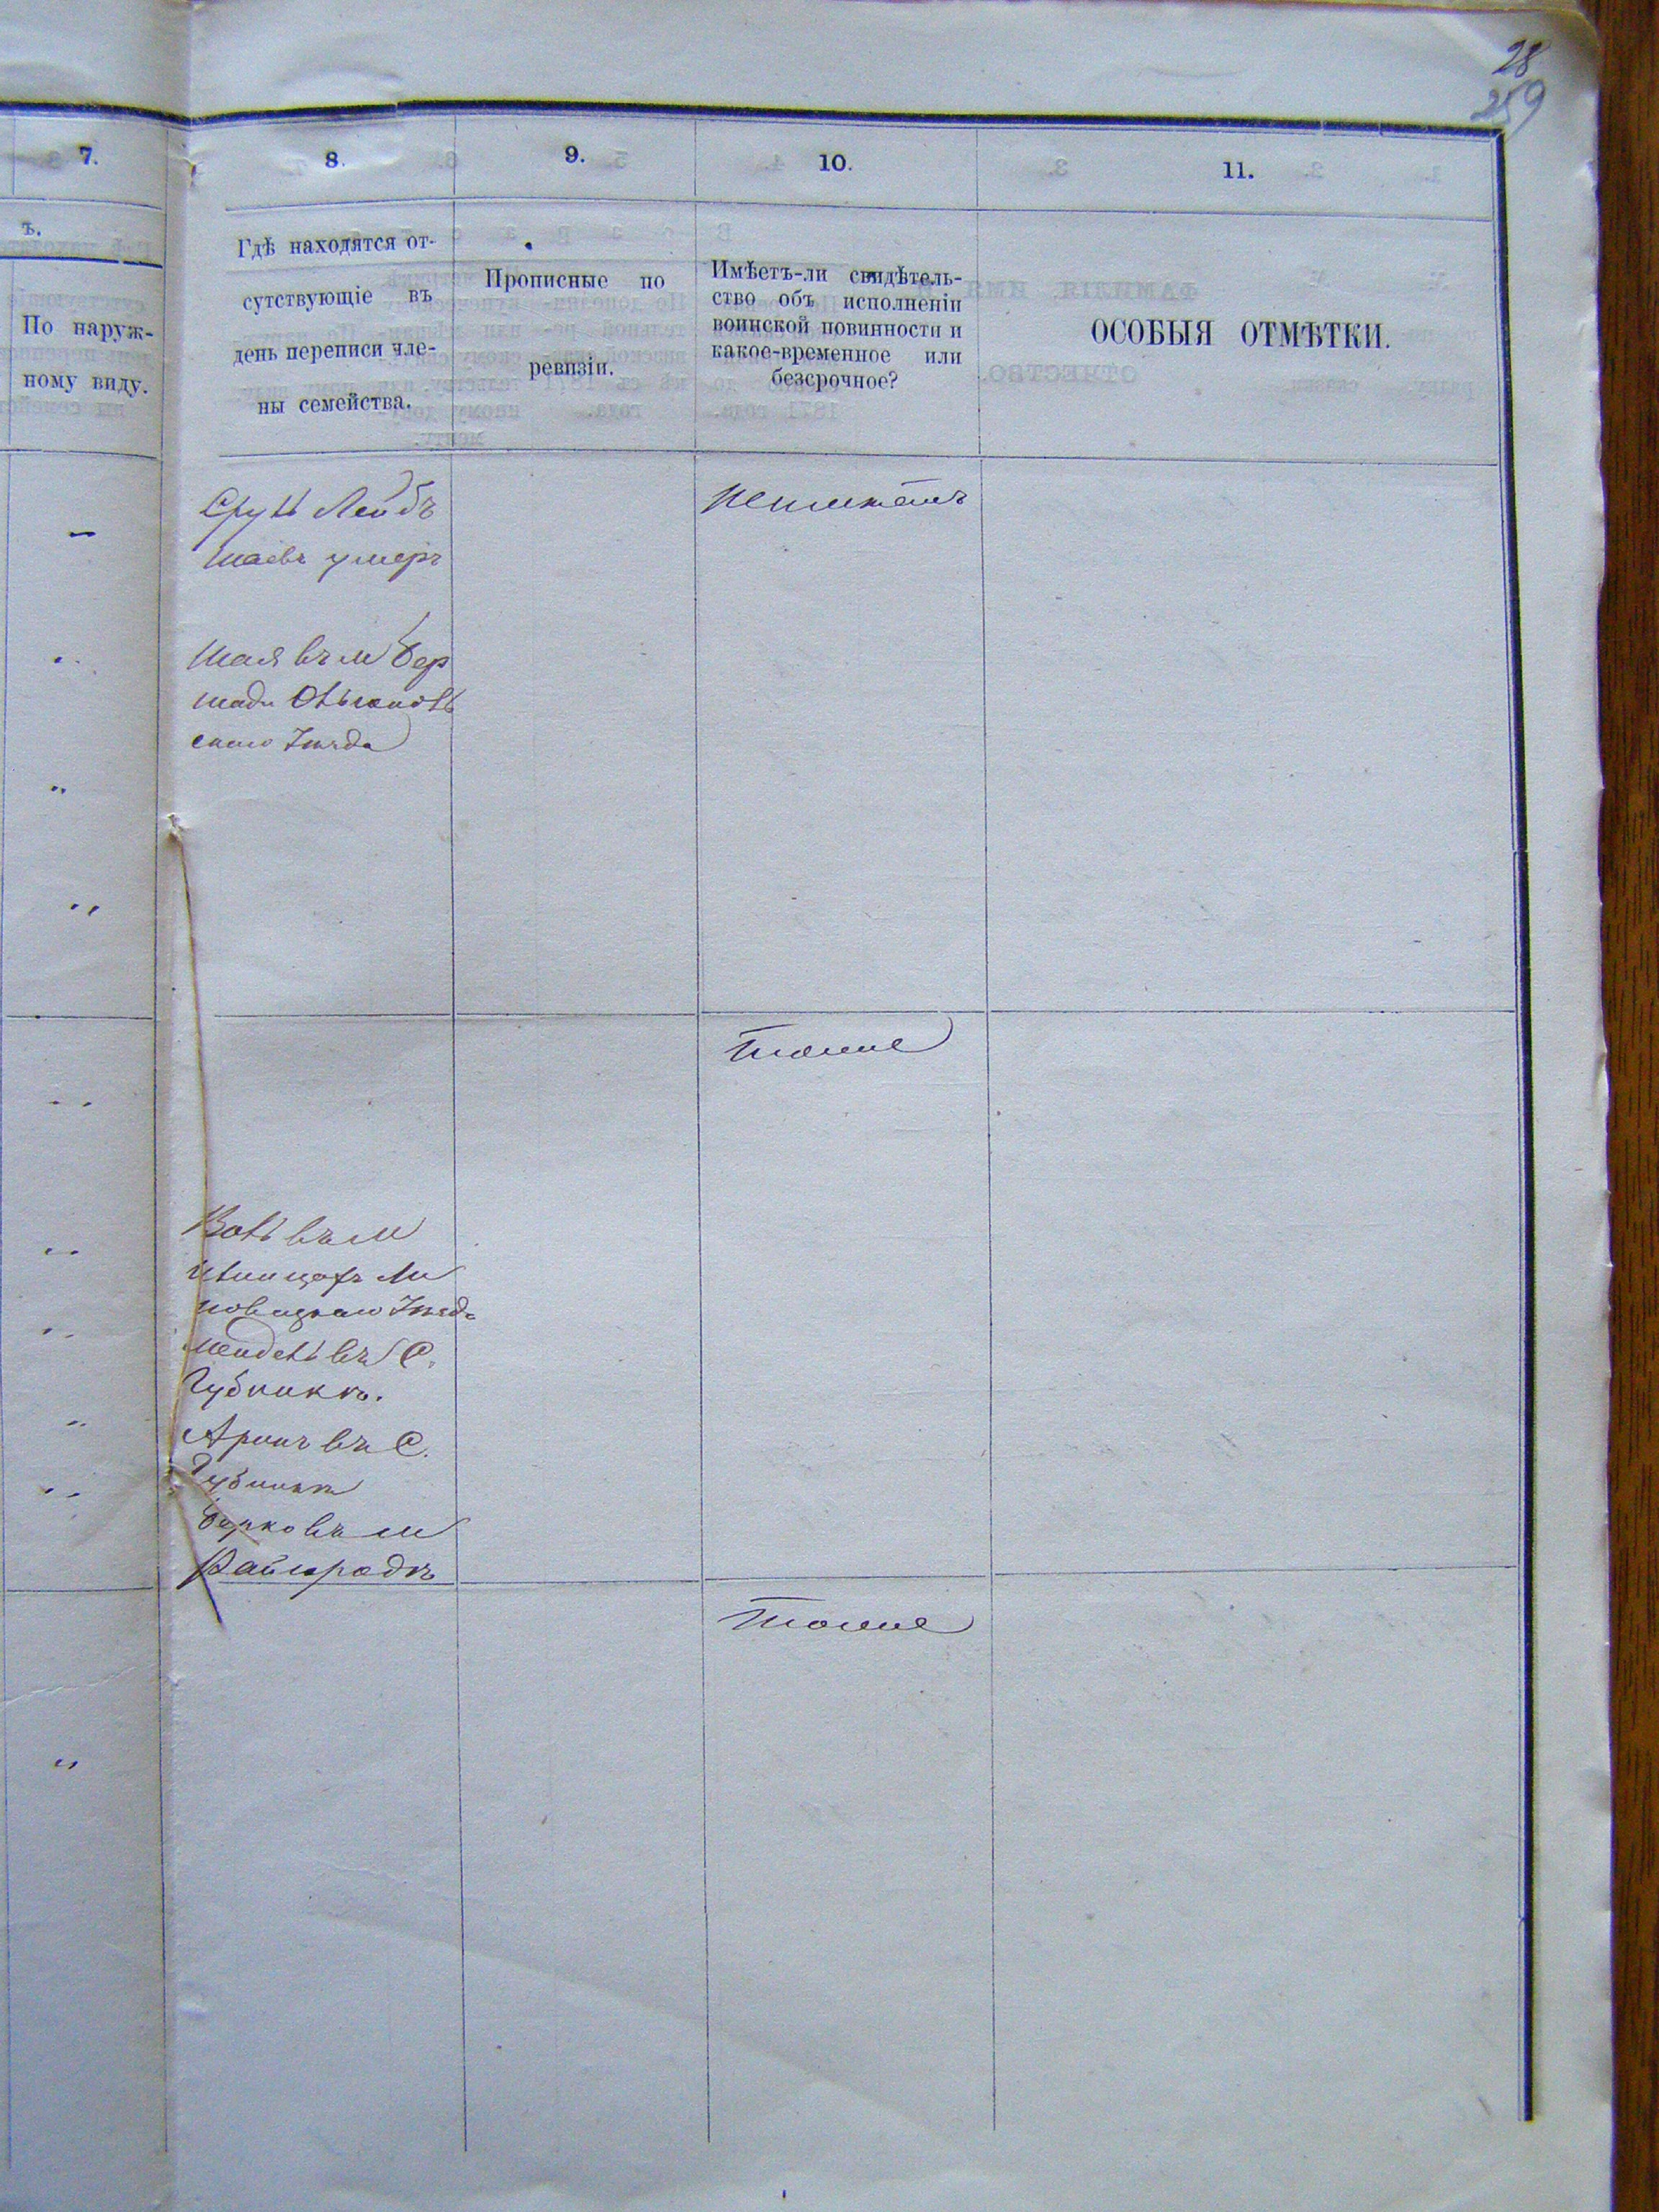 28
259
7.
8.
9.
10.
11.
ъ.
По наруж-
ному виду.
Гдѣ находятся от-
сутствующіе въ
день переписи чле-
ны семейства.
Прописные по
ревизіи.
Имѣетъ-ли свидѣтель-
ство объ исполненіи
воинской повинности и
какое-временное или
безсрочное?
ОСОБЫЯ ОТМѢТКИ.
Сруль Лейбъ
Шаевъ умеръ
Неимѣетъ
Шая въ м Бер
шади Ольгополь
скаго Уѣзда
Тоже
Воль въ м
Ли
повецкаго Уѣзда
Мендель въ С.
Губникѣ.
Аронъ въ С.
Губникѣ
Берко въ м
Райгродѣ
Тоже